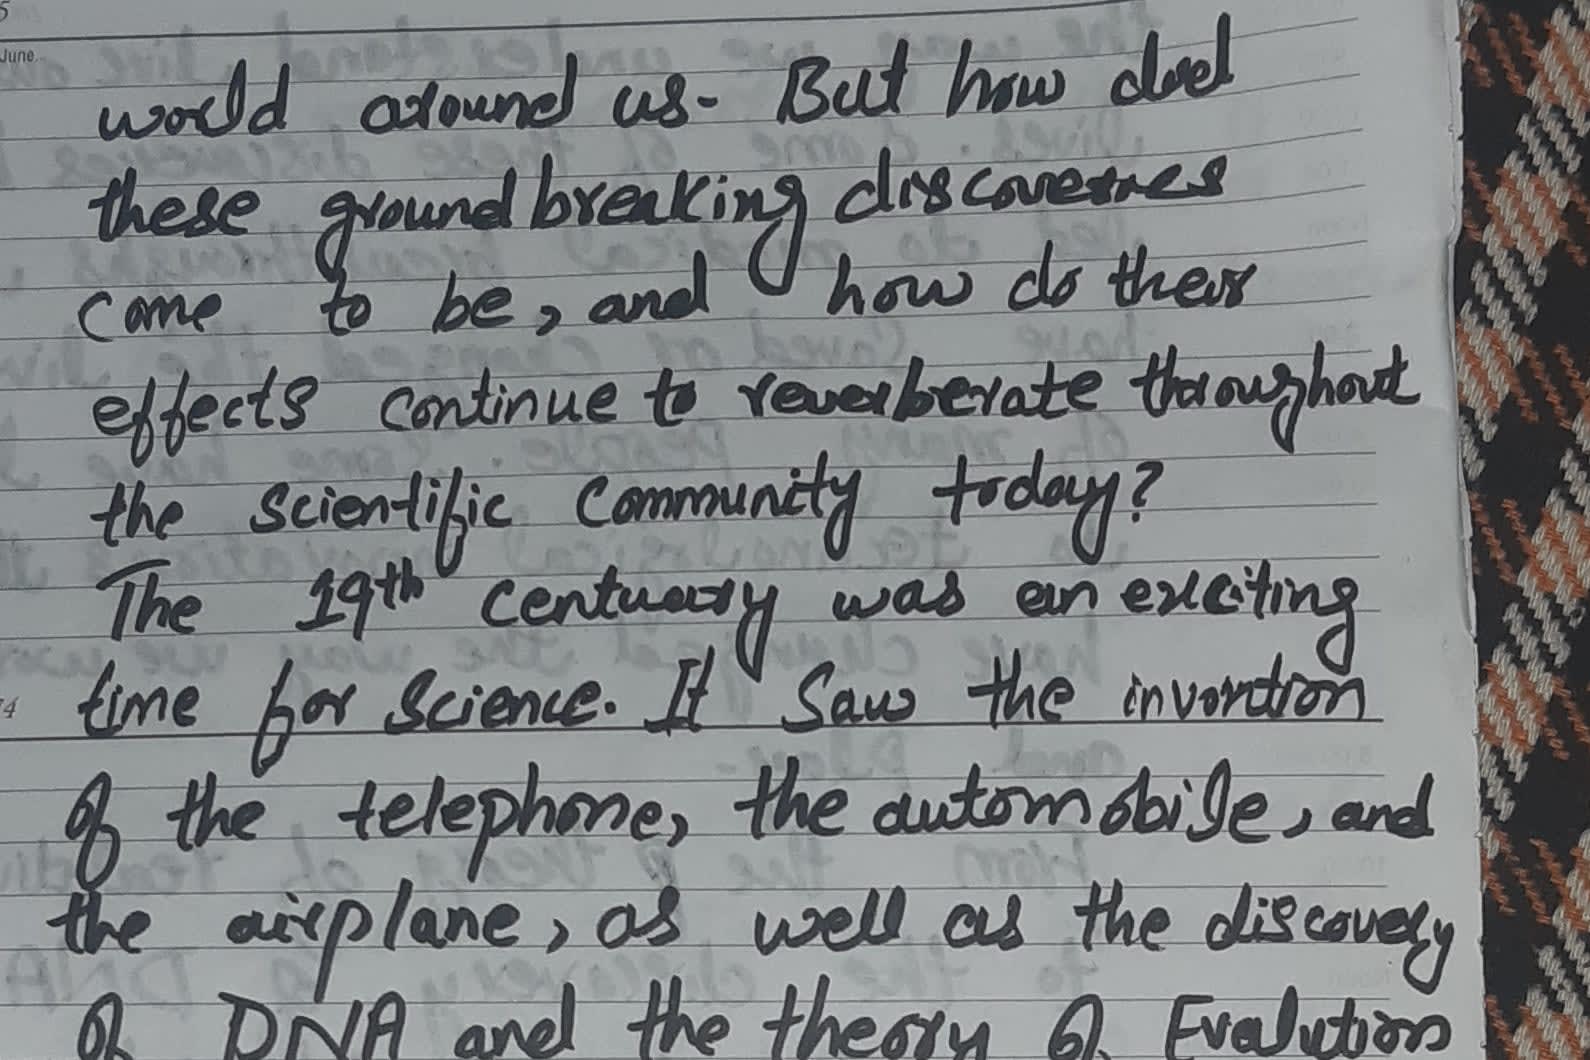 5
June
world around us. But how did
these groundbreaking discoveries
come to be, and how do their
effects continue to reverberate throughout
the Scientific Community today?
The 19th century was an exciting
time for Science. It saw the invention
4
of the telephone, the automobile, and
the airplane, as well as the discovery
of DNA and the theory of Evolution